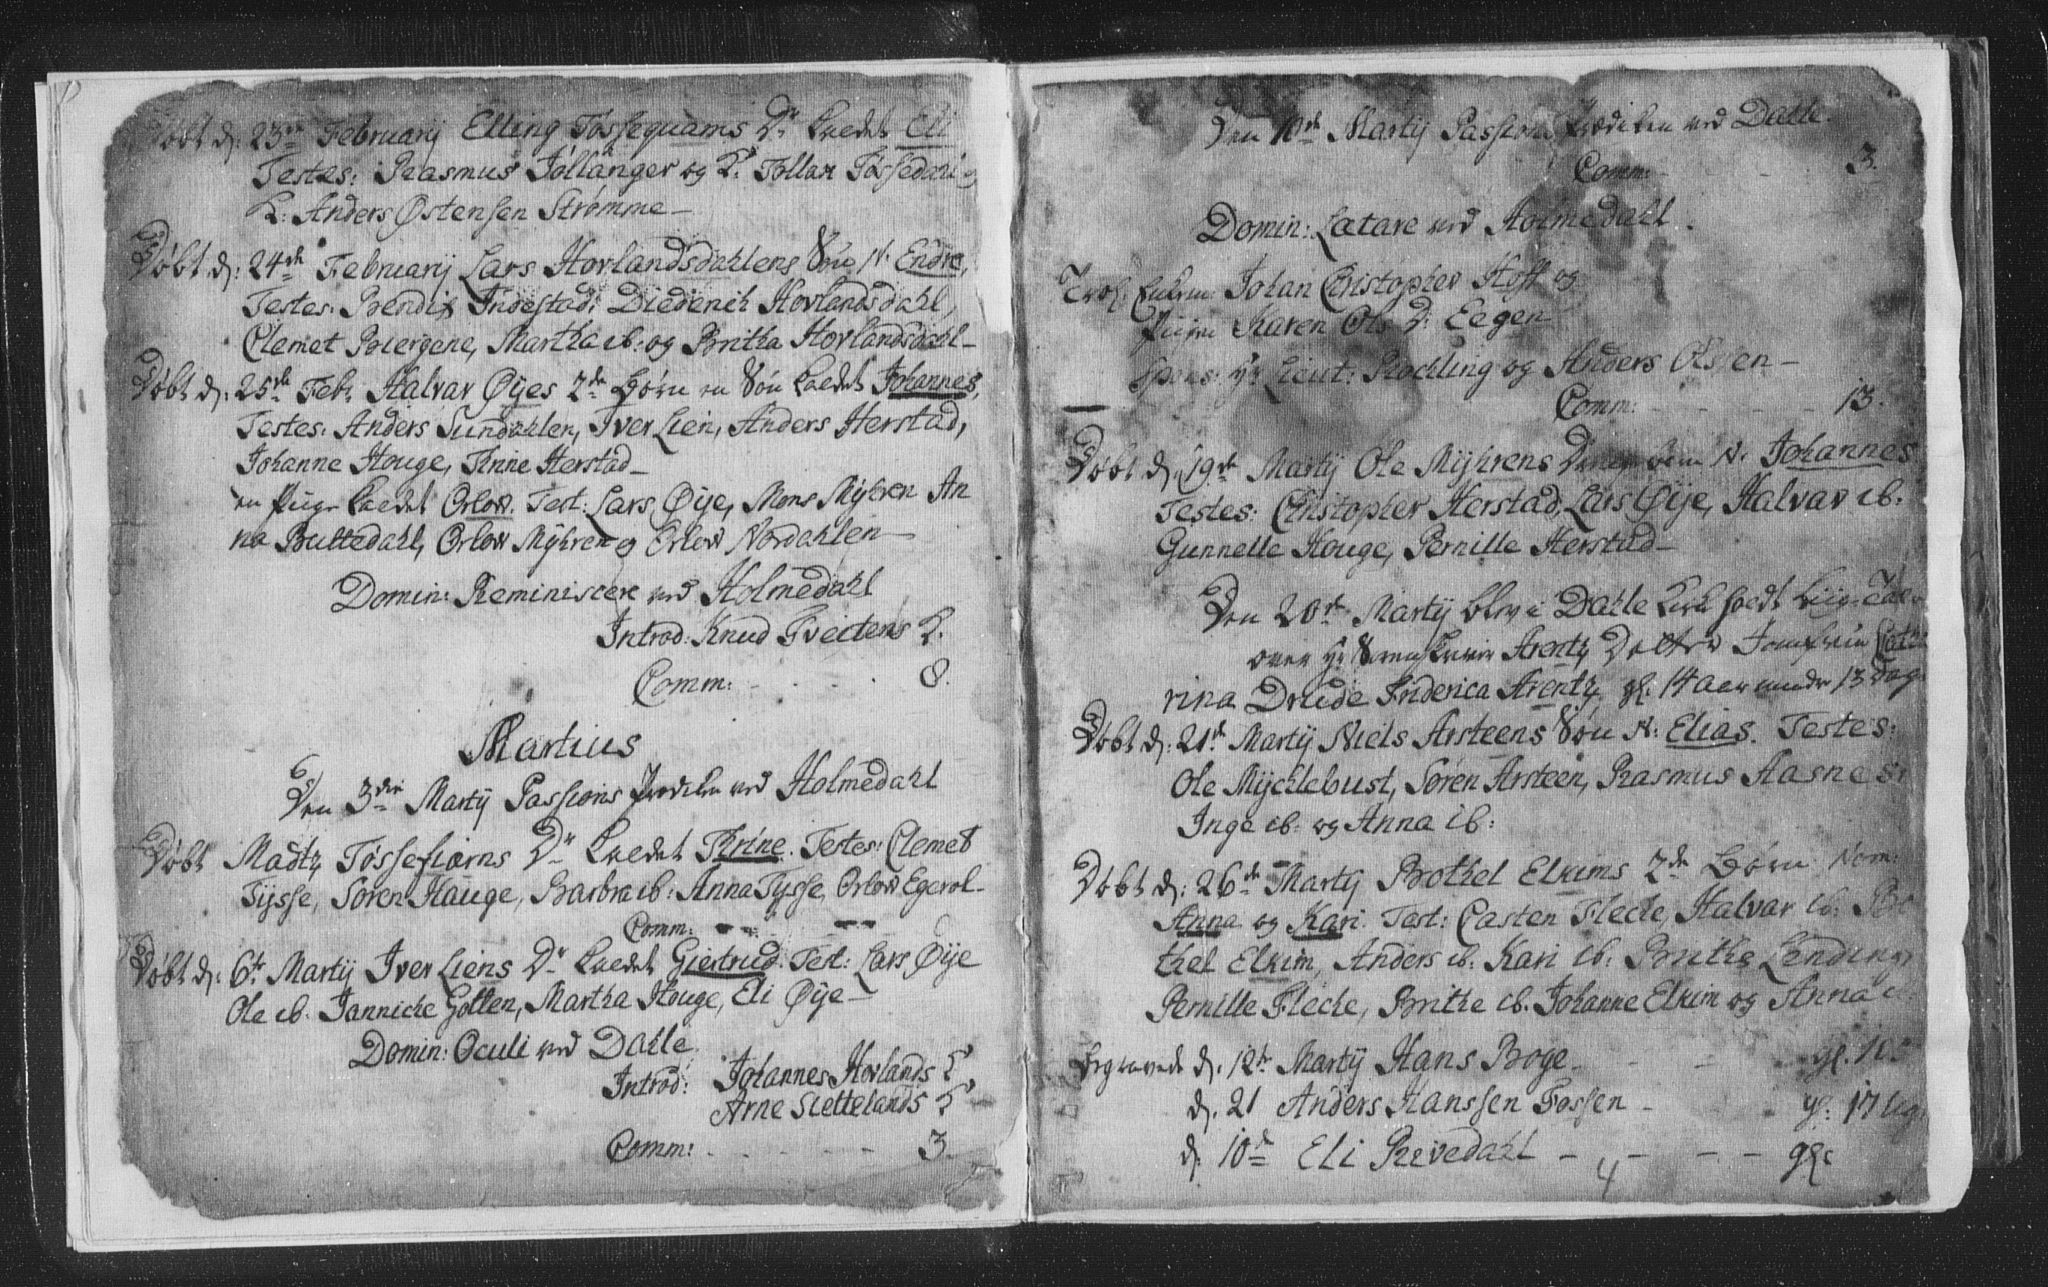 Døbt d: 23de Februarij Elling Tøssequams Dr kaldet Eli
Testes: Rasmus Jøllanger og K. Tollax Tøssedahl og
K: Anders Østensen Strømme
Døbt d: 24de Februarij Lars Hovlandsdahlens Søn N. Endre,
Testes: Bendix Indestad, Diederich Hovlandsdahl,
Clemet Buergene, Martha ib: og Britha Hovlandsdahl
Døbt d: 25de Febr Halvar Øÿes 2de Børn en Søn kaldet Johannes,
Testes: Anders Sundahlen, Iver Lien, Anders Herstad,
Johanne Houge, Trine Herstad
en Pige kaldet Orlow. Test: Lars Øÿe, Mons Mÿhren An
na Bultedahl, Orlow Mÿhren og Orlow Nordahlen
Domin: Reminiscere ved Holmedahl
Introd: Knud Tveitens K.
Comm: 8.
Martius
Den 3die Martij Passions Prædiken ved Holmedahl
Døbt Madtz Tøssefiærns Dr kaldet Thrine. Testes: Clemet
Tÿsse, Søren Hauge, Barbra ib: Anna Tÿsse, Orlow Egerol
Comm:
Døbt d: 6te Martij Iver Liens Dr kaldet Giertrud. Test: Lars Øÿe
Ole ib. Jannicke Gotten, Martha Houge, Eli Øÿe
Domin: Oculi ved Dahle
Introd: Johannes Hovlands K
Arne Slettelands K
Comm: 3.
Den 10de Martij Passions Prædiken ved Dahle.
Comm: 3.
Domin: Lætare ved Holmedahl.
Trol: Johan Christopher Hoff og
Pigen Karen Ols D: Eegen
Spons: Hr Lieut: Rochling og Anders Olssen
Comm: 13.
Døbt d: 19de Martij Ole Mÿhrens Drenge barn N. Johannes
Testes: Christopher Herstad, Lars Øÿe, Halvar ib.
Gunnelle Houge, Pernille Herstad
Den 20de Martij blev i Dahle Kirke holdt Liig-Tale
over Hr Sorenskriver Arentz Datter Jomfrue Catha
rina Drude Friderica Arentz, gl: 14 Aar mindre 13 Dag
Døbt d: 21de Martij Niels Arsteens Søn N: Elias. Testes:
Ole Mÿchlebust, Søren Arsteen, Rasmus Aasnes
Inge ib: og Anna ib:
Døbt d: 26de Martij Bothel Elvims 2de Børn Nom:
Anna og Kari. Test: Casten Flecke, Halvar ib: Bo
thel Elvim, Anders ib. Kari ib: Brithe Lending
Pernille Flecke, Brithe ib. Johanne Elvim og Anna ib.
Begravede d. 12te Martij Hans Boge gl.
d. 21 Anders Hanssen Fossen gl: 17 Ug
d: 10de Eli Revedahl gl:
4